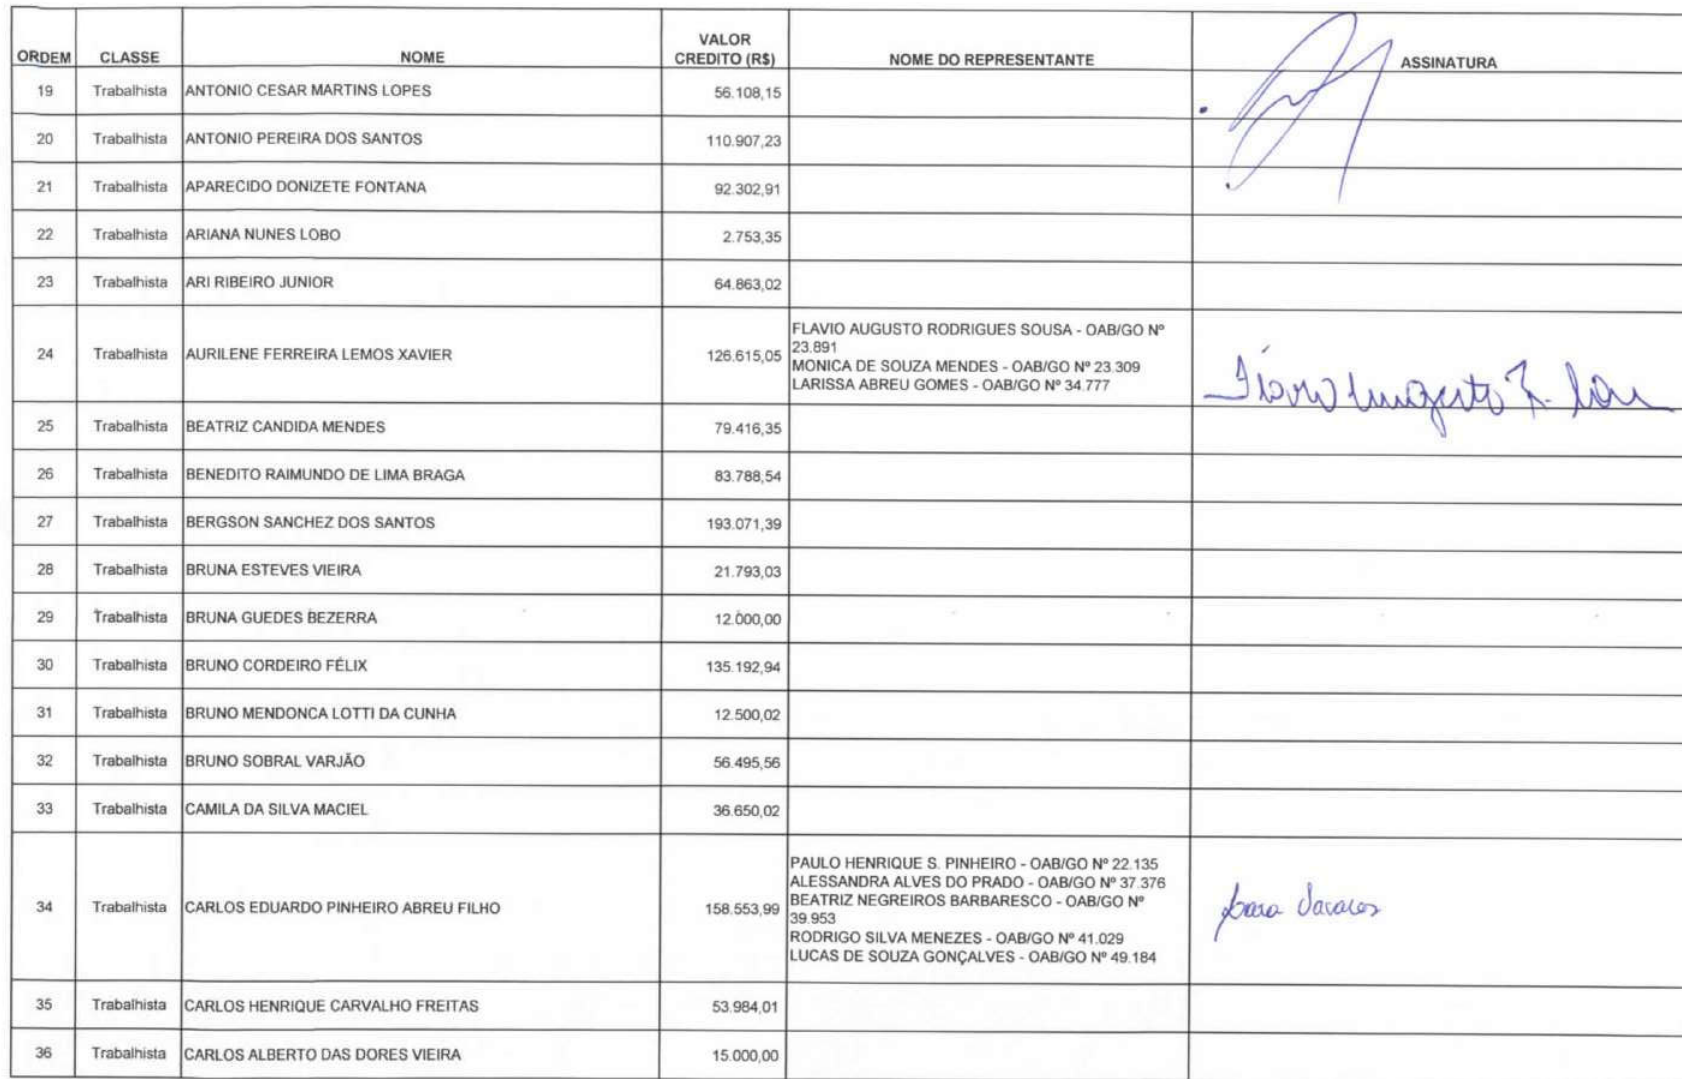 ORDEM CLASSE NOME VALOR CREDITO (R$) NOME DO REPRESENTANTE ASSINATURA
19 Trabalhista ANTONIO CESAR MARTINS LOPES 56.108,15
20 Trabalhista ANTONIO PEREIRA DOS SANTOS 110.907,23
21 Trabalhista APARECIDO DONIZETE FONTANA 92.302,91
22 Trabalhista ARIANA NUNES LOBO 2.753,35
23 Trabalhista ARI RIBEIRO JUNIOR 64.863,02
24 Trabalhista AURILENE FERREIRA LEMOS XAVIER 126.615,05
FLAVIO AUGUSTO RODRIGUES SOUSA - OAB/GO Nº
23.891
MONICA DE SOUZA MENDES - OAB/GO Nº 23.309
LARISSA ABREU GOMES - OAB/GO Nº 34.777
25 Trabalhista BEATRIZ CANDIDA MENDES 79.416,35
26 Trabalhista BENEDITO RAIMUNDO DE LIMA BRAGA 83.788,54
27 Trabalhista BERGSON SANCHEZ DOS SANTOS 193.071,39
28 Trabalhista BRUNA ESTEVES VIEIRA 21.793,03
29 Trabalhista BRUNA GUEDES BEZERRA 12.000,00
30 Trabalhista BRUNO CORDEIRO FÉLIX 135.192,94
31 Trabalhista BRUNO MENDONCA LOTTI DA CUNHA 12.500,02
32 Trabalhista BRUNO SOBRAL VARJÃO 56.495,56
33 Trabalhista CAMILA DA SILVA MACIEL 36.650,02
34 Trabalhista CARLOS EDUARDO PINHEIRO ABREU FILHO 158.553,99
PAULO HENRIQUE S. PINHEIRO - OAB/GO Nº 22.135
ALESSANDRA ALVES DO PRADO - OAB/GO Nº 37.376
BEATRIZ NEGREIROS BARBARESCO - OAB/GO Nº
39.953
RODRIGO SILVA MENEZES - OAB/GO Nº 41.029
LUCAS DE SOUZA GONÇALVES - OAB/GO Nº 49.184
35 Trabalhista CARLOS HENRIQUE CARVALHO FREITAS 53.984,01
36 Trabalhista CARLOS ALBERTO DAS DORES VIEIRA 15.000,00